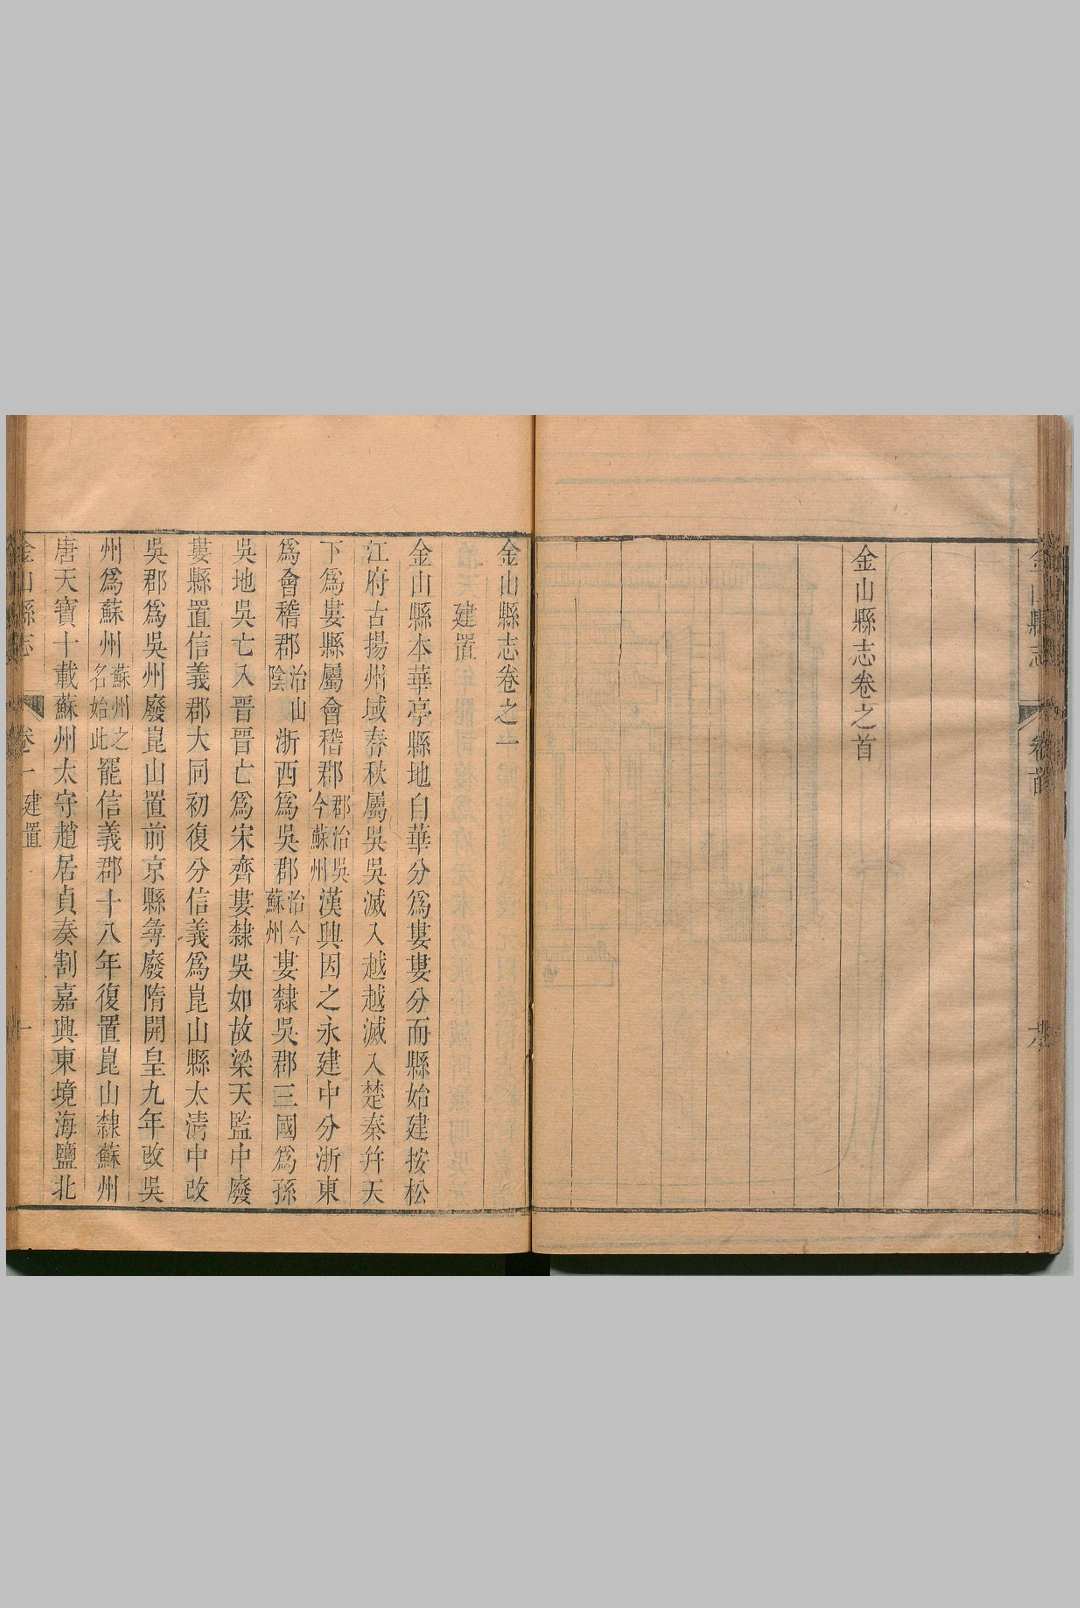 金山縣志卷之首
金山縣志
卷首
金山縣志卷之一
建置
金山縣本華亭縣地自華分爲婁婁分而縣始建按松
江府古揚州域春秋屬吳吳滅入越越滅入楚秦幷天
下爲婁縣屬會稽郡郡治吳今蘇州漢興因之永建中分浙東
爲會稽郡治山陰浙西爲吳郡治今蘇州婁隸吳郡三國爲孫
吳地吳亡入晉晉亡爲宋齊婁隸吳如故梁天監中廢
婁縣置信義郡大同初復分信義爲崑山縣太清中改
吳郡爲吳州廢崑山置前京縣尋廢隋開皇九年改吳
州爲蘇州蘇州之名始此罷信義郡十八年復置崑山隸蘇州
唐天寶十載蘇州太守趙居貞奏割嘉興東境海鹽北
金山縣志
卷一
建置
一